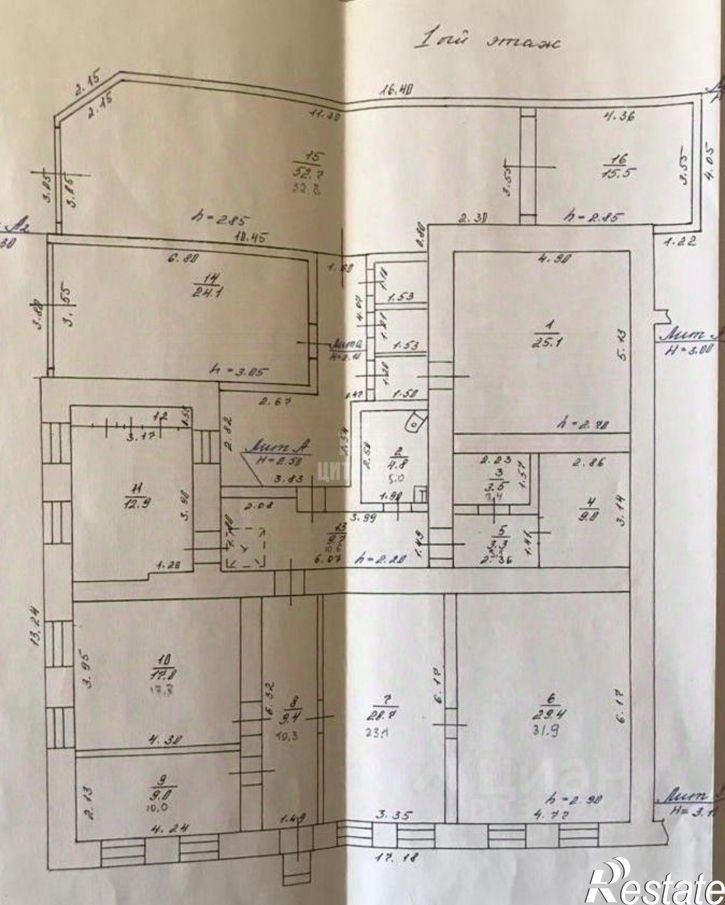 1ый этаж
2.15
2.15
16.40
11.20
4.36
15
52.7
52.7
16
15.5
3.05
3.05
3.55
3.55
4.05
h=2.85
h=2.85
2.30
10.45
1.22
6.80
4.90
14
24.1
1.53
3.80
3.55
1
25.1
5.13
Лит А
H=3.00
1.53
Лит а
h=3.05
1.50
2.67
h=2.70
12
3.17
2.82
2.50
2
4.8
5.0
Лит А
H=2.50
3.83
1.90
2.23
3
3.5
1.57
2.86
4
9.0
3.14
11
12.9
3.90
2.08
3.99
13
5
6.07
h=2.20
1.49
2.36
1.41
1.20
13.24
3.95
10
17.0
17.3
4.30
6.32
8
9.4
10.3
7
20.7
23.1
6.17
6
29.4
31.9
6.17
9
9.0
10.0
2.13
4.24
1.49
3.35
h=2.90
4.77
17.18
циан
Restate